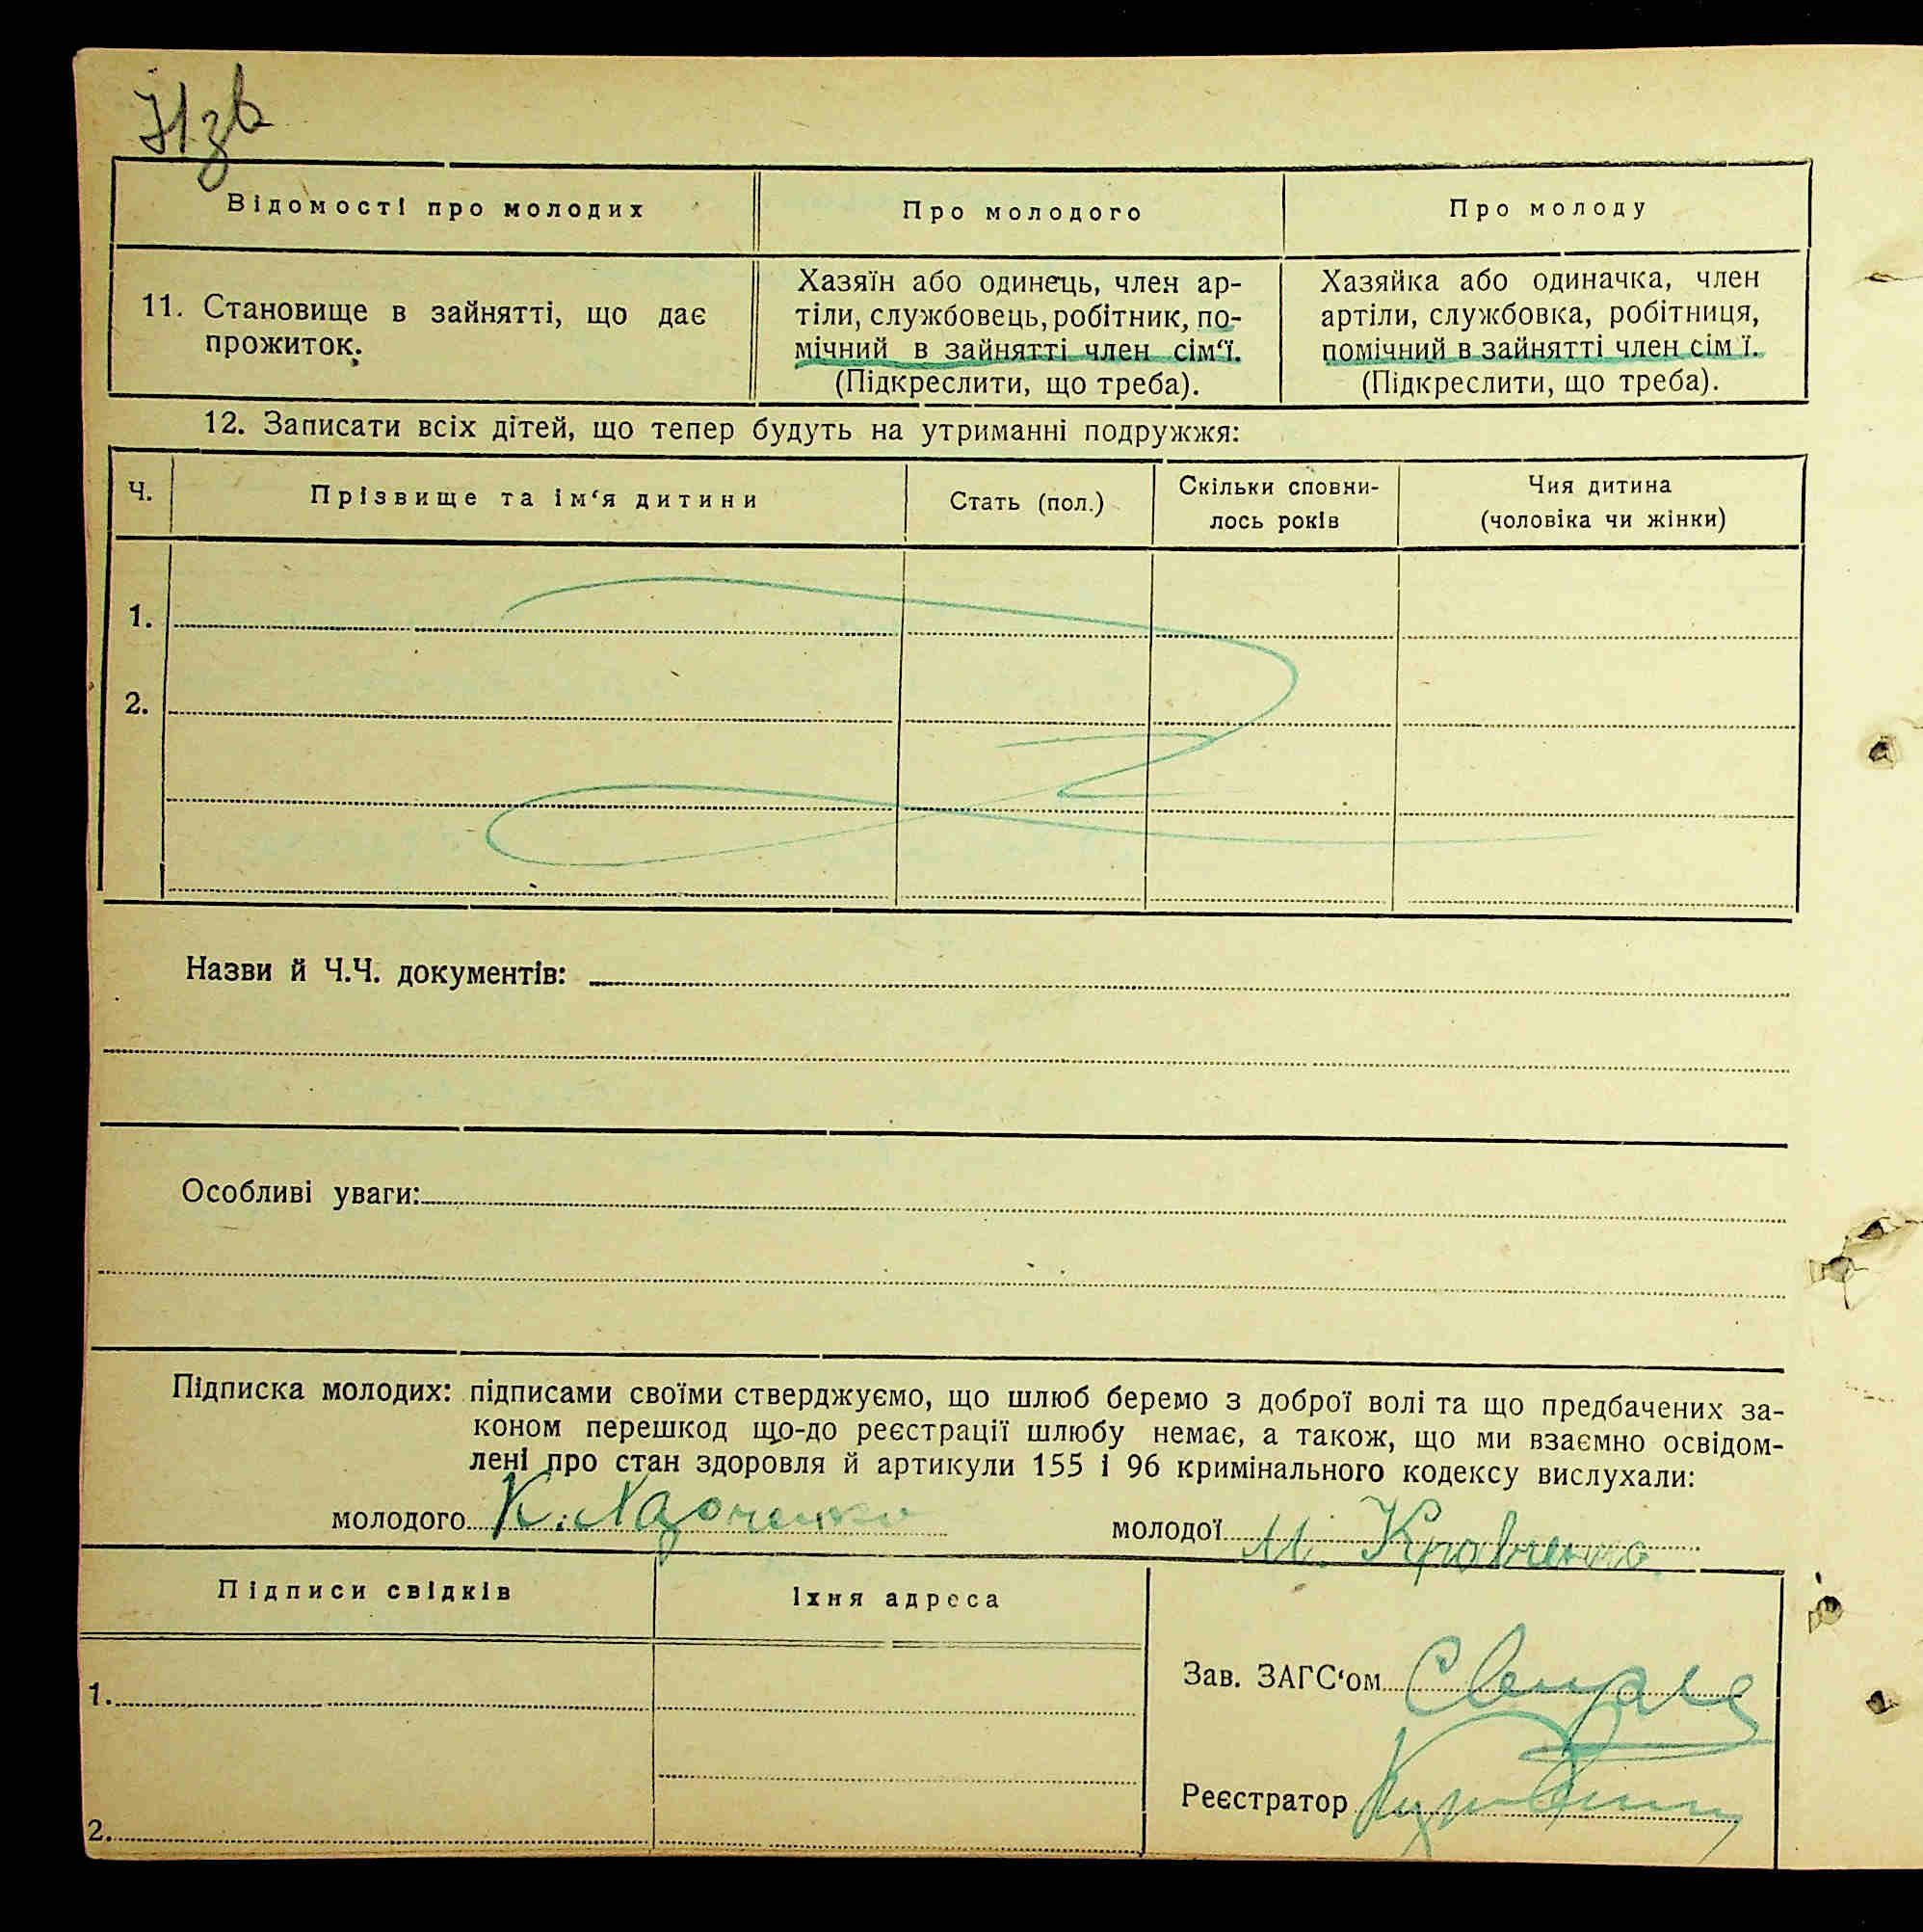 Відомості про молодих
Про молодого
Про молоду
11. Становище в зайнятті, що дає
прожиток.
Хазяїн або одинець, член ар-
тіли, службовець, робітник, по-
мічний в зайнятті член сім‘ї.
(Підкреслити, що треба).
Хазяйка або одиначка, член
артіли, службовка, робітниця,
помічний в зайнятті член сім ї.
(Підкреслити, що треба).
12. Записати всіх дітей, що тепер будуть на утриманні подружжя:
Ч.
Прізвище та ім‘я дитини
Стать (пол.)
Скільки сповни-
лось років
Чия дитина
(чоловіка чи жінки)
1.
2.
Назви й Ч.Ч. документів:
Особливі уваги:
Підписка молодих: підписами своїми стверджуємо, що шлюб беремо з доброї волі та що предбачених за-
коном перешкод що-до реєстрації шлюбу немає, а також, що ми взаємно освідом-
лені про стан здоровля й артикули 155 і 96 кримінального кодексу вислухали:
молодого К.
молодої М. Кравченко
Підписи свідків
Їхня адреса
1.
2.
Зав. ЗАГС‘ом
Реєстратор